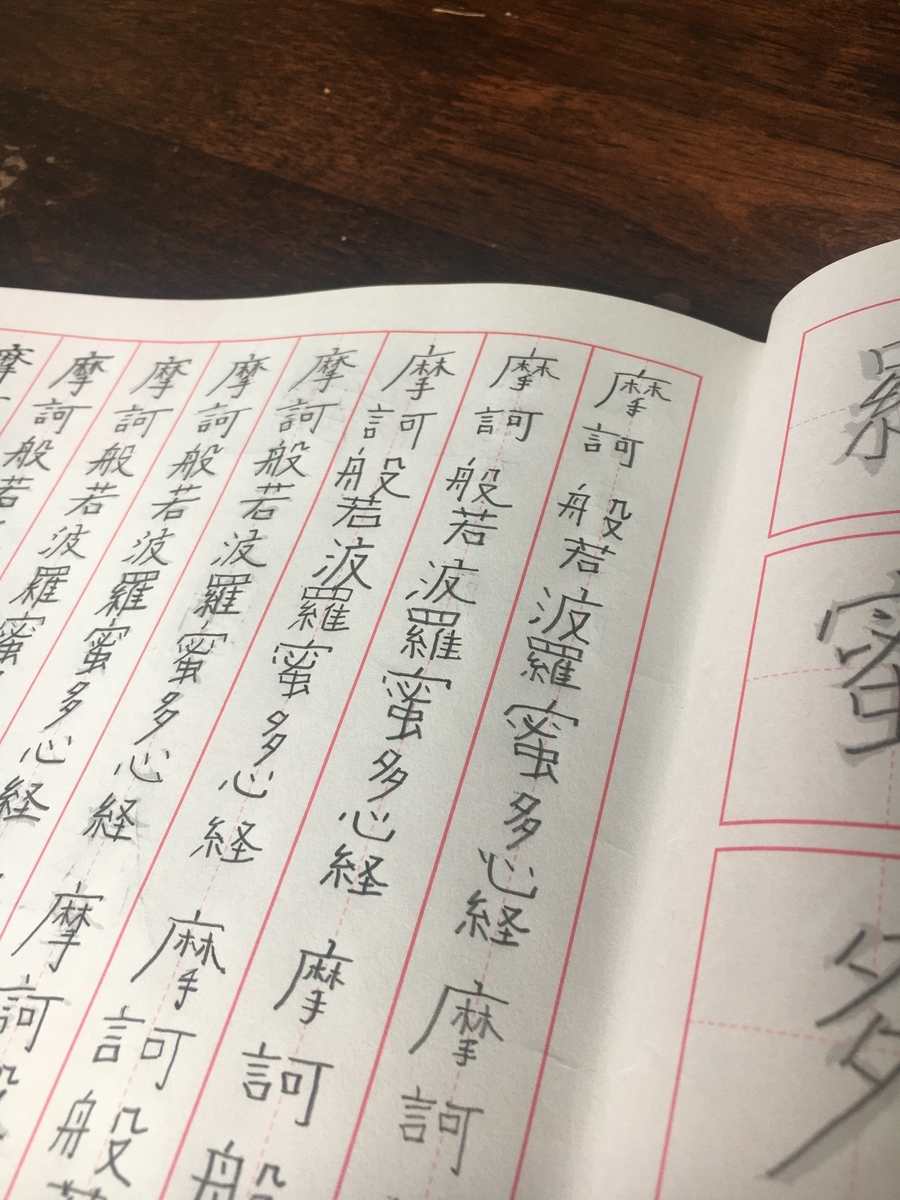 羅
蜜
多
摩訶般若波羅蜜多心経摩訶
摩訶般若波羅蜜多心経摩訶般
摩訶般若波羅蜜多心経摩訶般若
摩訶般若波羅蜜多心経摩訶般
摩訶般若波羅蜜多心経
摩訶般若波羅蜜
摩訶般若
摩